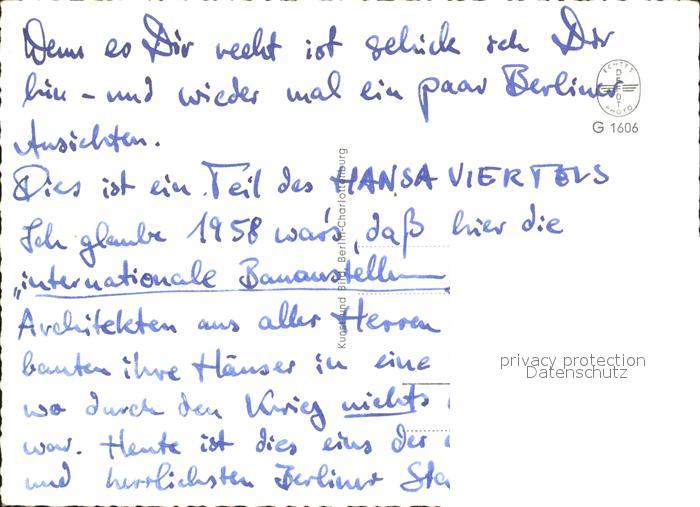 Wenn es Dir recht ist schick ich Dir
hin - und wieder mal ein paar Berliner
Ansichten.
Dies ist ein Teil des HANSA VIERTELS
Ich glaube 1958 war's, daß hier die
"internationale Bauausstellung
Architekten aus aller Herren
bauten ihre Häuser in eine
wo durch den Krieg nichts
war. Heute ist dies eins der
und herrlichsten Berliner Sta
ECHTES
DEFOT
PHOTO
G 1606
Kunst und Bild, Berlin-Charlottenburg
privacy protection
Datenschutz